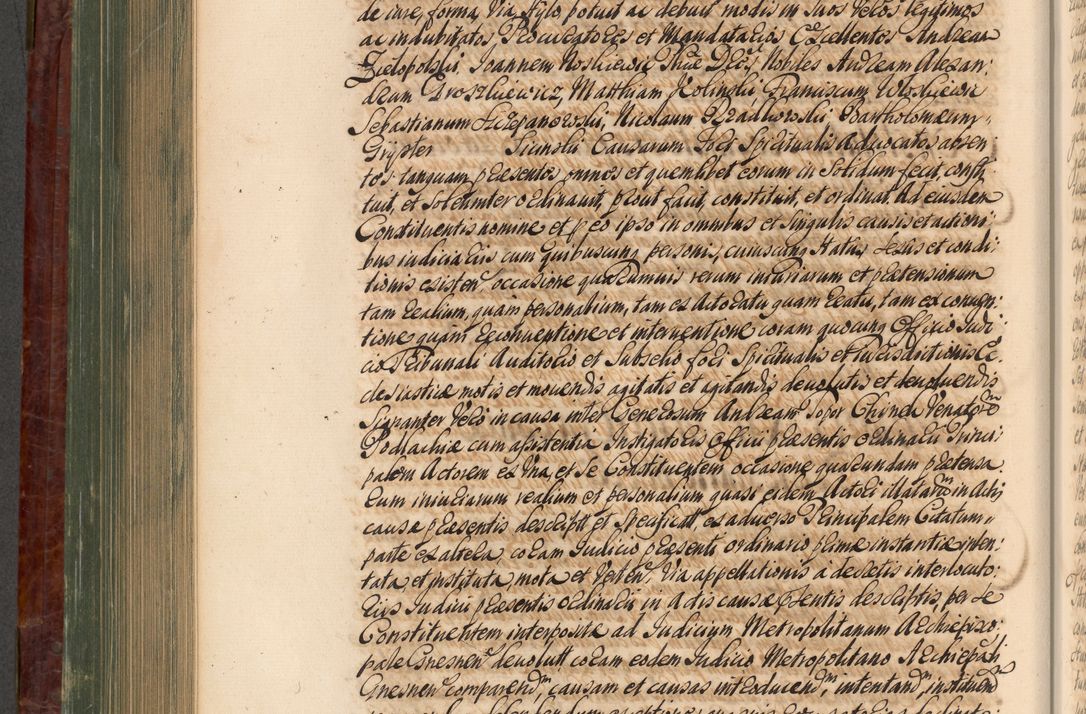 de iure, forma, via, stylo potuit ac debuit modis in suos veros legitimos
ac indubitatos Procuratores et Mandatarios Excellentes Andream
Zielopolski, Joannem Noskiewicz Nobles Andream Alexan:
drum Droszkiewicz, Matthiam Kolinski, Franciscum Woskiewicz
Sebastianum Szczepanowski, Nicolaum Bartholomeum
Grypter Causarum Fori Spiritualis Advocatos absen
tes tanquam praesentes omnes et quemlibet eorum in Solidum fecit, consti
tuit, et solemniter ordinavit, prout facit, constituit, et ordinat. Ad eiusdem
Constituentis nomine et pro ipso in omnibus et singulis causis et actioni:
bus iudiciariis cum quibuscunq personis, cuiuscunq status, sexus et condi:
tionis existen: occasione quarumvis rerum iniuriarum et praetensionum
tam realium, quam personalium, tam ex Actoratu quam Reatu, tam ex conven:
tione quam Reconventione et interventione coram quocunq Officio Judi
cio Tribunali Auditorio et Subselio fori Spiritualis et Iurisdictionis Ec
clesiasticae motis et movendis agitatis et agitandis devolutis et devolvendis
Signanter vero in causa inter Generosum Andream Sopor Venatorem
Podlachiae cum assistentia Instigatoris Officii praesentis ordinarii Princi:
palem Actorem ex una, et se Constituentem occasione quarundam praetensa
rum iniuriarum realium et personalium quasi eidem Actori illatarum in Actis
causae praesentis descriptt et specificatt, ex adverso Principalem Citatum
parte ex altera, coram Judicio praesenti ordinario primae instantiae inten:
tata, et instituta, mota et verten: Via appellationis a decretis interlocuto:
riis Judicii praesentis ordinarii in Actis causae psentis descriptis, per se
Constituentem interpositae ad Judicium Metropolitanum Archiepisco:
pale Gnesnen: devolutt coram eodem Judicio Metropolitano Archiepali
Gnesnen: comparend, causam et causas introducend, intentand, instituend